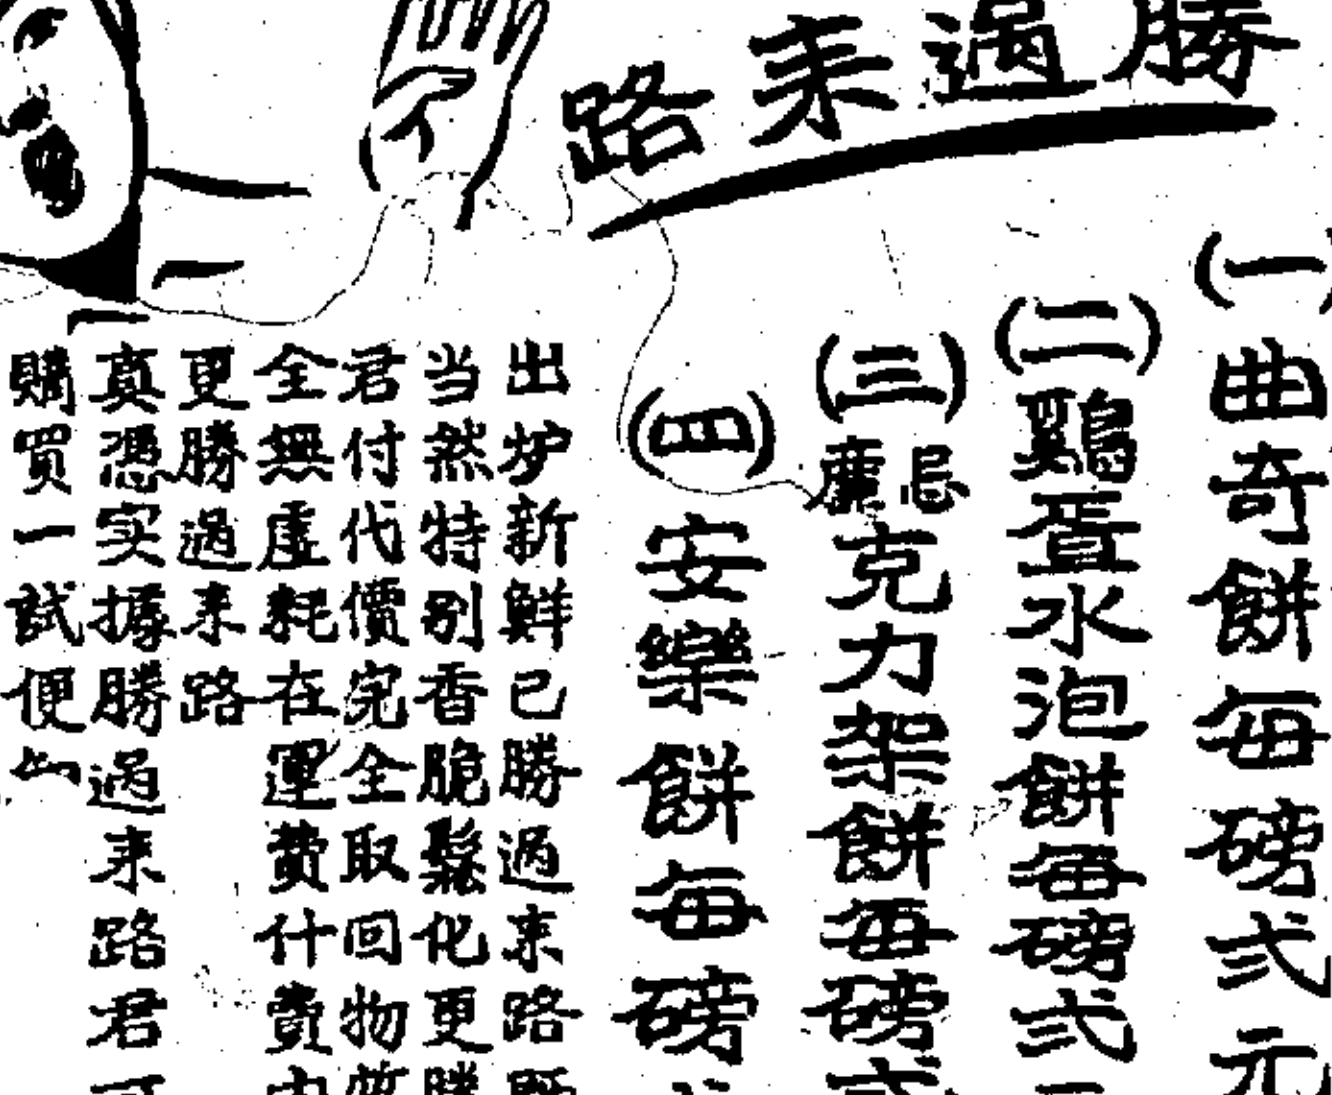 勝過来路
(一)曲奇餅每磅弍元
(二)鷄疍水泡餅每磅弍
(三)克力架餅每磅弍
(四)安樂餅每磅
出炉新鮮已勝過来路
当然特别香脆鬆化更勝
君付代價完全取回物質
全無虛耗在運費什費
更勝過来路
真憑实據勝過来路君可
購買一試便